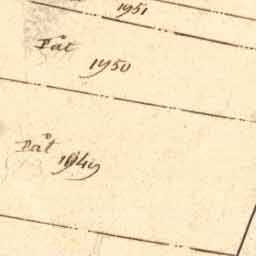 1951
Påt
1950
Påt
1949